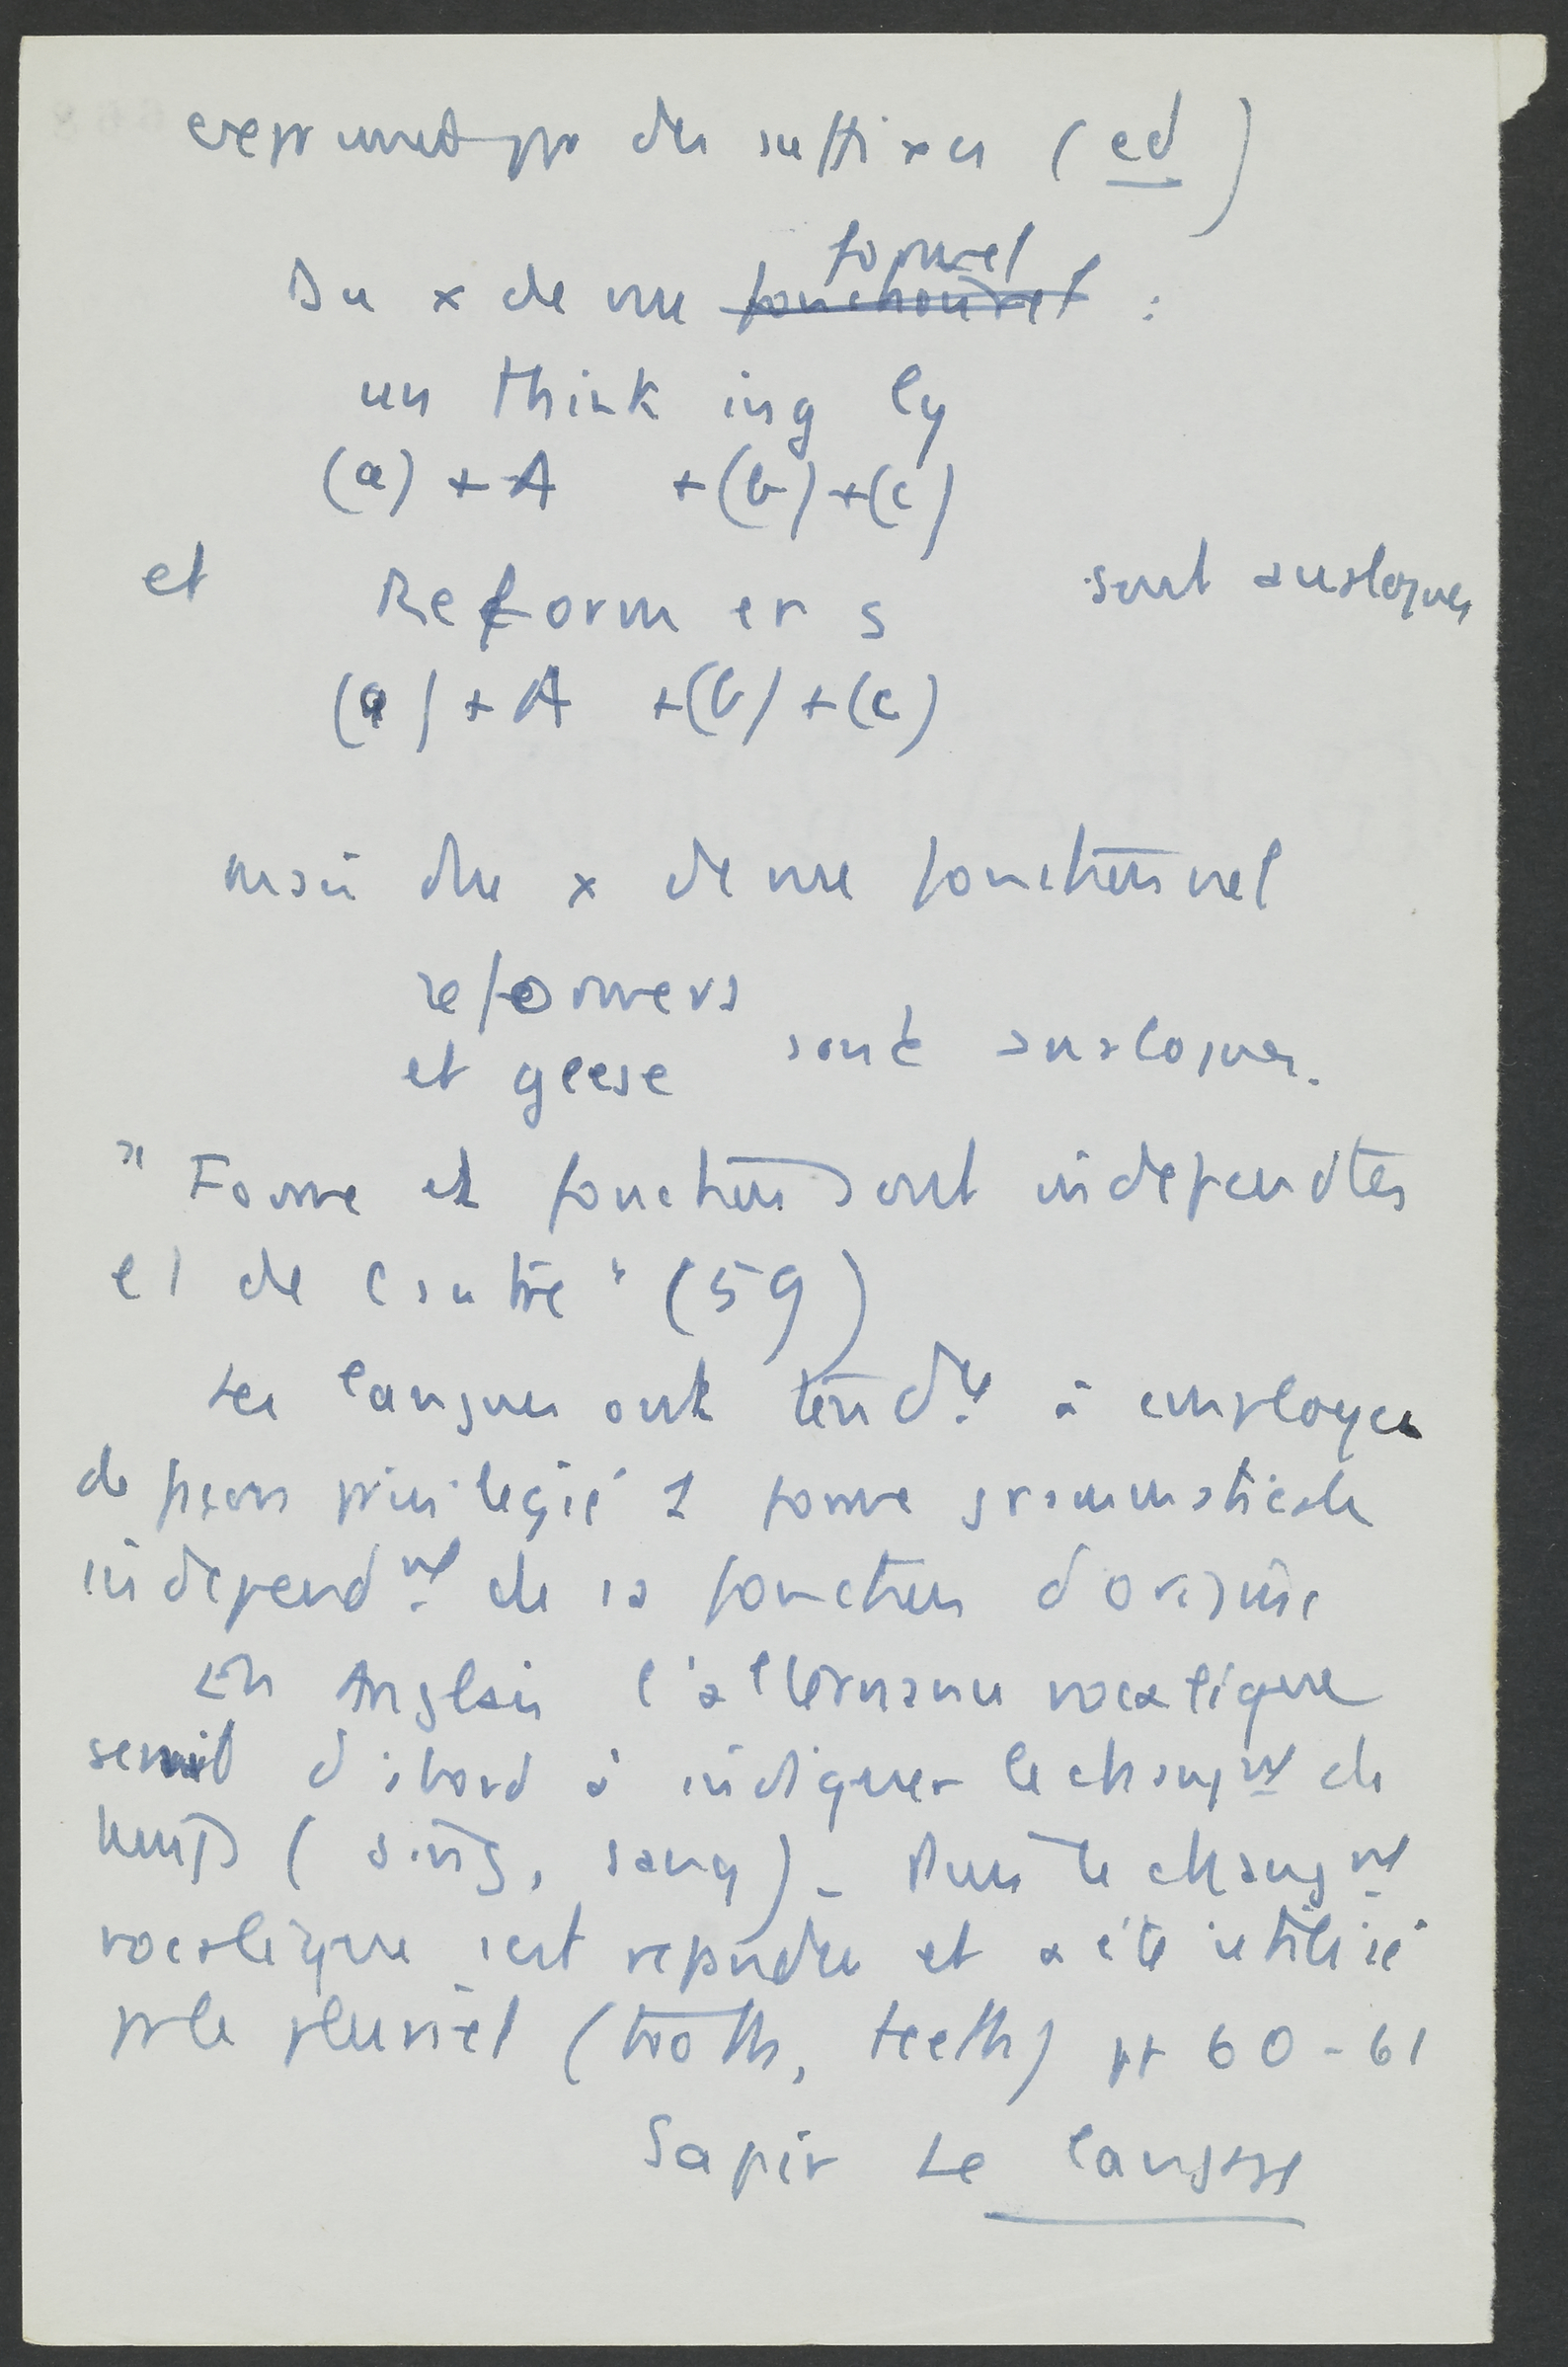 des suffixes (ed)
formel
Du x de vue fonctionnel :
un think ing ly
(a) + A + (b) + (c)
et Reform er s sont analogues
(a) + A + (b) + (c)
mais du x de vue fonctionnel
reformers
et geese sont analogues.
"Forme et fonction sont independtes
l'1 de l'autre" (59)
Les langues ont tendce à employer
de façon privilégiée 1 forme grammaticale
independnt de sa fonction d'origine
En Anglais l'alternance vocalique
servit d'abord à indiquer le changnt de
temps (sing, sang). Puis le changnt
vocalique s'est repandu et a été utilisé
pr le pluriel (tooth, teeth) pp 60-61
Sapir Le langage